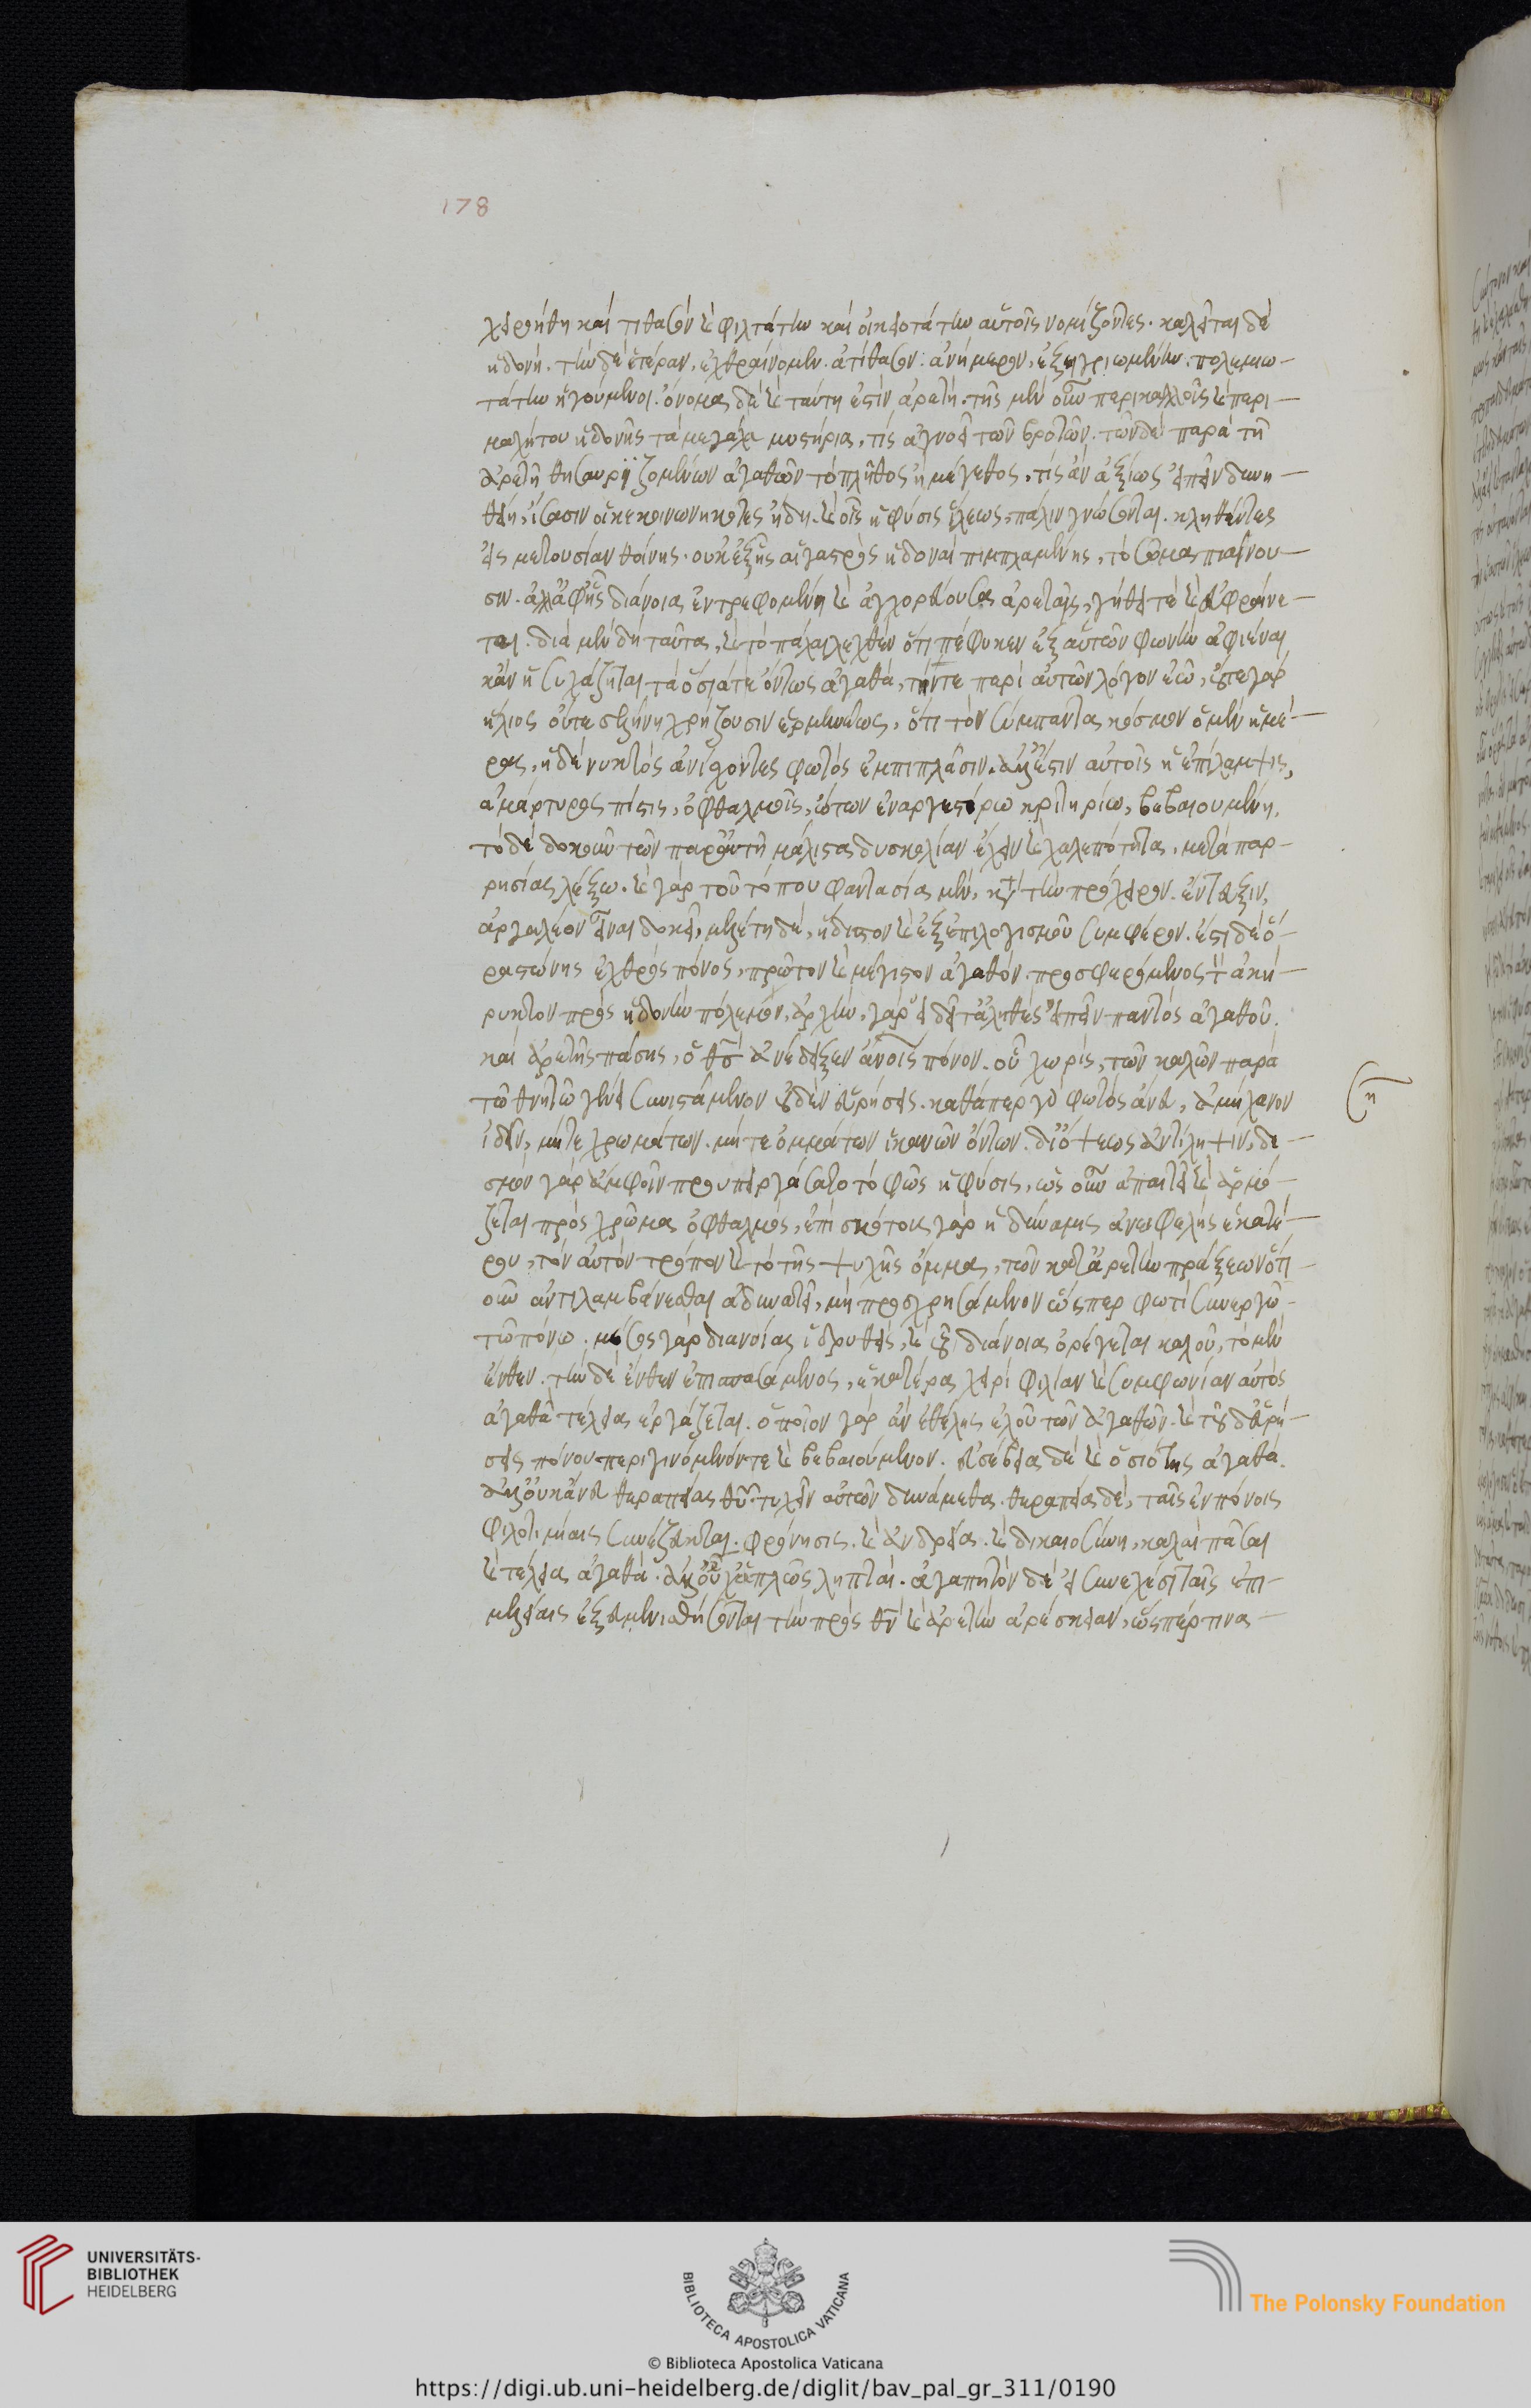 178
χειροήθη καὶ τιθασὸν καὶ φιλτάτην καὶ οἰκειοτάτην αὑτοῖς νομίζοντες. καλεῖται δὲ
ἡδονή. τὴν δὲ ἑτέραν, ἐχθραίνομεν. ἀτίθασον. ἀνήμερον, ἐξηγριωμένην. πολεμιω-
τάτην ἡγούμενοι. ὄνομα δὲ καὶ ταύτῃ ἐστὶν ἀρετή. τῆς μὲν οὖν περικαλλοῦς καὶ περι-
μαχήτου ἡδονῆς τὰ μεγάλα μυστήρια, τίς ἀγνοεῖ τῶν βροτῶν. τῶν δὲ παρὰ τῇ
ἀρετῇ θησαυριζομένων ἀγαθῶν τὸ πλῆθος ἢ μέγεθος, τίς ἂν ἀξίως εἰπεῖν δυνη-
θείη, ἴσασιν οἱ κεκοινωνηκότες ἤδη. καὶ οἷς ἡ φύσις ἵλεως, πάλιν γνώσονται. κληθέντες
εἰς μετουσίαν θοίνης. οὐκ ἐξ ἧς αἱ γαστρὸς ἡδοναὶ πιμπλαμένης, τὸ σῶμα πιαίνου-
σιν. ἀλλ' ἀφ' ἧς διάνοια ἐντρεφομένη καὶ ἀγχορεύουσα ἀρεταῖς, γήθει τὲ καὶ εὐφραίνε-
ται. διὰ μὲν δὴ ταῦτα, καὶ τὸ πάλαι λεχθὲν ὅτι πέφυκεν ἐξ αὑτῶν φωνὴν ἀφιέναι
κἂν ἡσυχάζηται τὰ ὅσιά τε ὄντως ἀγαθὰ, τόν τε περὶ αὐτῶν λόγον ἐῶ, οὔτε γὰρ
ἥλιος οὔτε σελήνη χρῄζουσιν ἑρμηνέως, ὅτι τὸν σύμπαντα κόσμον ὁ μὲν ἡμέ-
ρας, ἡ δὲ νυκτὸς ἀνίσχοντες φωτὸς ἐμπιπλᾶσιν. ἀλλ' ἔστιν αὐτοῖς ἡ ἐπίλαμψις,
ἀμάρτυρος πίστις, ὀφθαλμοῖς, ὤτων ἐναργεστέρω κριτηρίω, βεβαιουμένη.
τὸ δὲ δοκοῦν τῶν παρ' αὐτῇ μάλιστα δυσκολίαν ἔχειν καὶ χαλεπότητα, μετὰ παρ-
ρησίας λέξω. καὶ γὰρ τοῦτό που φαντασία μὲν, κατὰ τὴν πρόχειρον. ἔντευξιν,
ἀργαλέον εἶναι δοκεῖ, μελέτη δὲ, ἥδιστον καὶ ἐξ ἐπιλογισμοῦ συμφέρον. ἔστι δὲ ὁ
ῥαστώνης ἐχθρὸς πόνος, πρῶτον καὶ μέγιστον ἀγαθόν. προσφερόμενος τὸν ἀκή-
ρυκτον πρὸς ἡδονὴν πόλεμον, ἀρχὴν, γὰρ εἰ δεῖ τἀληθὲς εἰπεῖν παντὸς ἀγαθοῦ.
καὶ ἀρετῆς πάσης, ὁ θς ἀνέδειξεν ἀνοις πόνον. οὗ χωρὶς, τῶν καλῶν παρὰ
τῷ θνητῷ γένει συνιστάμενον οὐδὲν εὑρήσεις. καθάπερ γὰρ φωτὸς ἄνευ, ἀμήχανον
ἰδεῖν, μήτε χρωμάτων. μήτε ὀμμάτων ἱκανῶν ὄντων. δι' ὄψεως ἀντίληψιν, δε-
σμὸν γὰρ ἀμφοῖν προυπειργάσατο τὸ φῶς ἡ φύσις, ὡς οὖν ἀπαιτεῖ καὶ ἁρμό-
ζεται πρὸς χρῶμα ὀφθαλμὸς, ἐπὶ σκότους γὰρ ἡ δύναμις ἀνωφελὴς ἑκατέ-
ρου, τὸν αὐτὸν τρόπον καὶ τὸ τῆς ψυχῆς ὄμμα, τῶν κατ' ἀρετὴν πράξεων ὁτι-
οῦν ἀντιλαμβάνεσθαι ἀδυνατεῖ, μὴ προσχρησάμενον ὥσπερ φωτὶ συνεργῷ
τῷ πόνω. μέσος γὰρ διανοίας ἱδρυθεὶς, καὶ οὗ διάνοια ὀρέγεται καλοῦ, τὸ μὲν
ἔνθεν. τὴν δὲ ἔνθεν ἐπισπασάμενος, ἑκατέρα χειρὶ φιλίαν καὶ συμφωνίαν αὐτὸς
ἀγαθὰ τέλεια ἐργάζεται. ὁποῖον γὰρ ἂν ἐθέλῃς ἑλοῦ τῶν ἀγαθῶν. καὶ τοῦδ' εὑρή-
σεις πόνου περιγινόμενόν τε καὶ βεβαιούμενον. εὐσέβεια δὲ καὶ ὁσιότης ἀγαθά.
ἀλλ' οὐκ ἄνευ θεραπείας θυ τυχεῖν αὐτῶν δυνάμεθα. θεραπεία δὲ, ταῖς ἐν πόνοις
φιλοτιμίαις συνέζευκται. φρόνησις. καὶ ἀνδρεία. καὶ δικαιοσύνη, καλαὶ πᾶσαι
καὶ τέλεια ἀγαθά. ἀλλ' οὐ γὰρ ἁπλῶς ληπταί. ἀγαπητὸν δὲ εἰ συνεχέσι ταῖς ἐπι-
μελείαις ἐξευμενισθήσονται τὴν πρὸς θν καὶ ἀρετὴν ἀρέσκειαν, ὥσπερ τινας
UNIVERSITÄTS-
BIBLIOTHEK
HEIDELBERG
BIBLIOTECA APOSTOLICA VATICANA
The Polonsky Foundation
© Biblioteca Apostolica Vaticana
https://digi.ub.uni-heidelberg.de/diglit/bav_pal_gr_311/0190